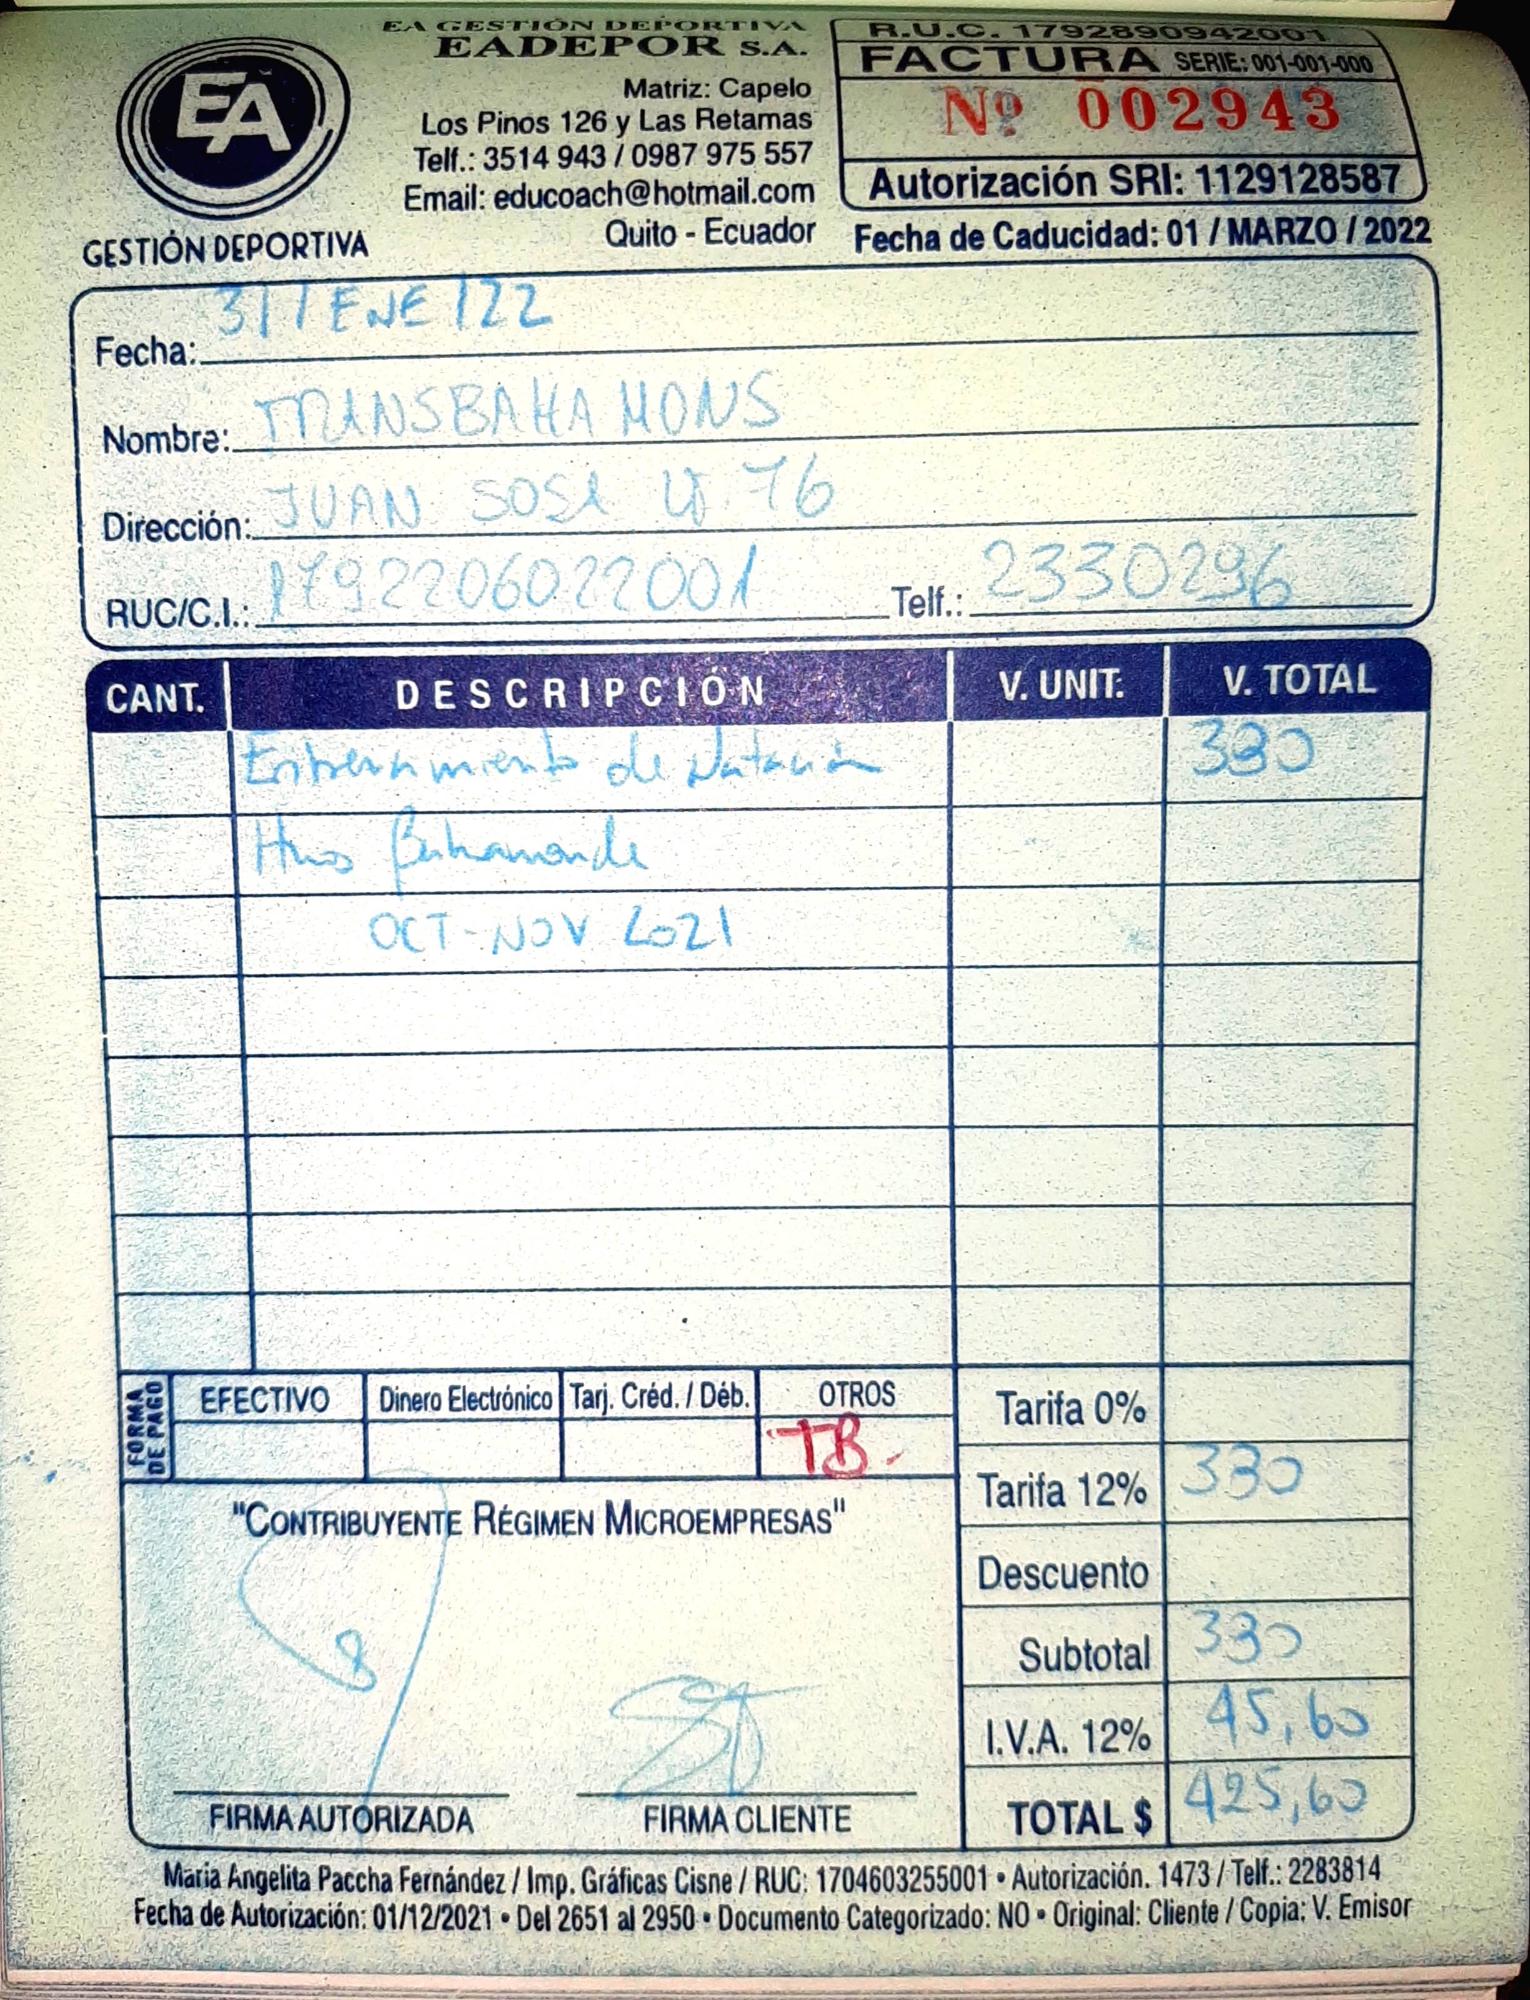 EA GESTIÓN DEPORTIVA
EADEPOR S.A.
Matriz: Capelo
Los Pinos 126 y Las Retamas
Telf.: 3514 943 / 0987 975 557
Email: educoach@hotmail.com
Quito - Ecuador
EA
GESTIÓN DEPORTIVA
R.U.C. 1792890942001
FACTURA SERIE: 001-001-000
Nº 002943
Autorización SRI: 1129128587
Fecha de Caducidad: 01 / MARZO / 2022
Fecha: 31 / ENE / 22
Nombre: TRANSBAHAMONS
Dirección: JUAN SOSA 76
RUC/C.I.: 1792206022001 Telf.: 2330296
CANT. DESCRIPCIÓN V. UNIT. V. TOTAL
Entrenamiento de Natación 380
Hnos Bahamonde
OCT-NOV 2021
FORMA DE PAGO EFECTIVO Dinero Electrónico Tarj. Créd. / Déb. OTROS
TB.
Tarifa 0%
Tarifa 12% 380
Descuento
Subtotal 380
I.V.A. 12% 45,60
TOTAL $ 425,60
"CONTRIBUYENTE RÉGIMEN MICROEMPRESAS"
FIRMA AUTORIZADA FIRMA CLIENTE
Maria Angelita Paccha Fernández / Imp. Gráficas Cisne / RUC: 1704603255001 • Autorización. 1473 / Telf.: 2283814
Fecha de Autorización: 01/12/2021 • Del 2651 al 2950 • Documento Categorizado: NO • Original: Cliente / Copia: V. Emisor